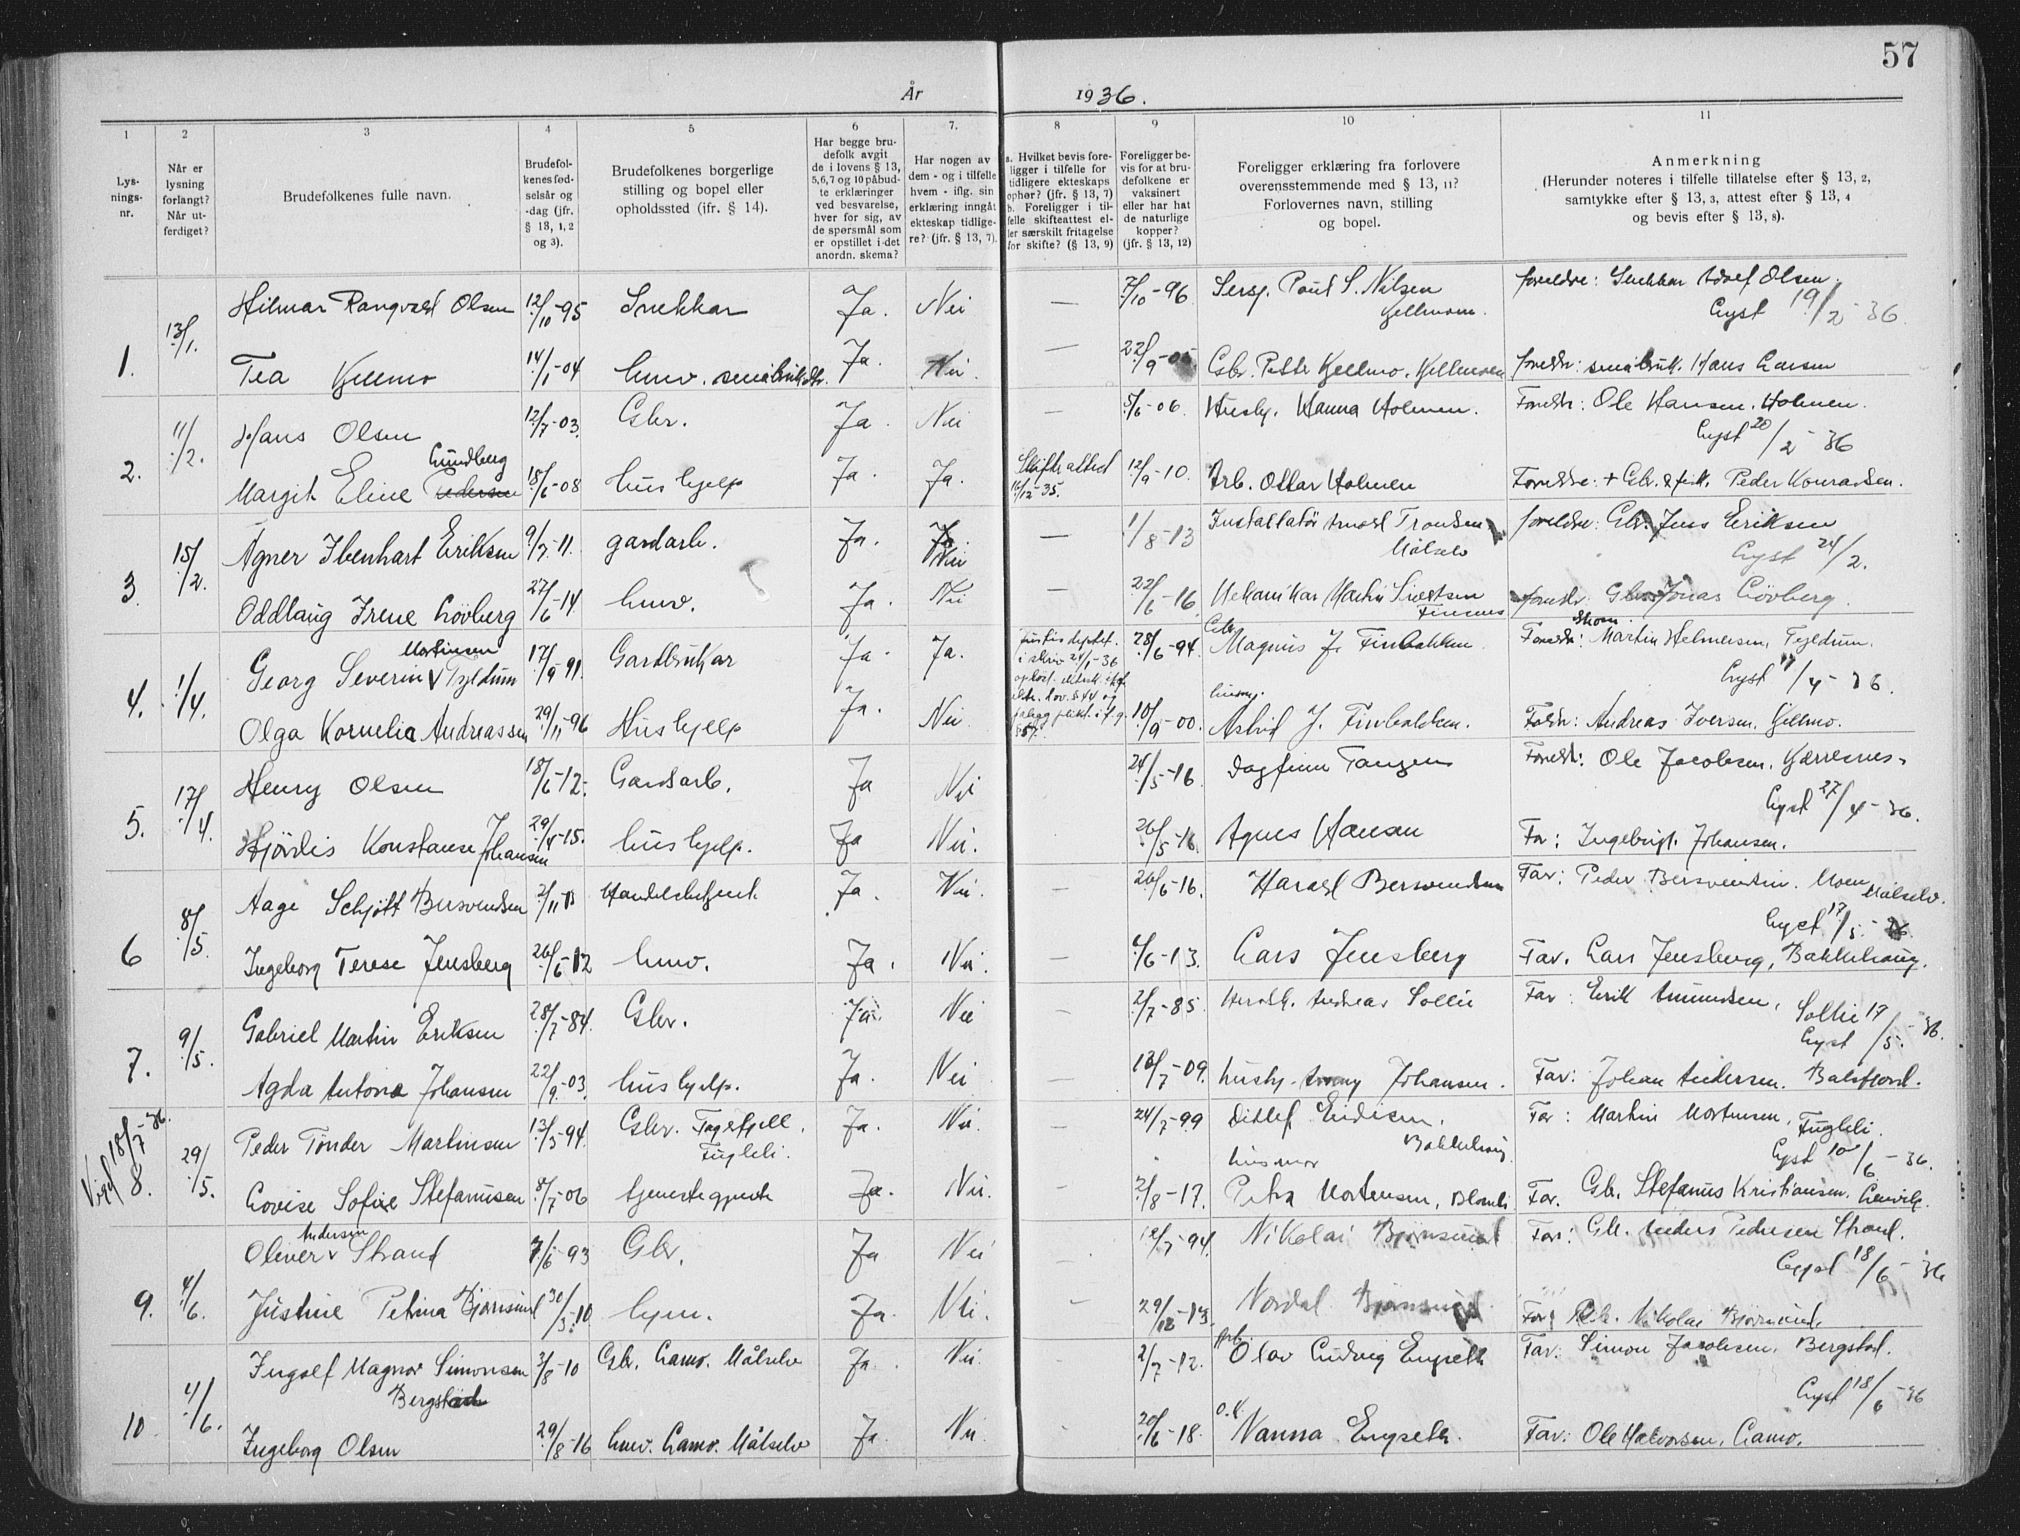 57
År 1936.
1 2 3 4 5 6 7. 8 9 10 11
Lys-
nings-
nr.
Når er
lysning
forlangt?
Når ut-
ferdiget?
Brudefolkenes fulle navn.
Brudefol-
kenes fød-
selsår og
-dag (jfr.
§ 13, 1, 2
og 3).
Brudefolkenes borgerlige
stilling og bopel eller
opholdssted (ifr. § 14).
Har begge bru-
defolk avgit
de i lovens § 13,
5,6,7 og 10 påbud-
te erklæringer
ved besvarelse,
hver for sig, av
de spørsmål som
er opstillet i det
anordn. skema?
Har nogen av
dem - og i tilfelle
hvem - iflg. sin
erklæring inngåt
ekteskap tidlige-
re? (jfr. § 13, 7).
a. Hvilket bevis fore-
ligger i tilfelle for
tidligere ekteskaps
ophør? (jfr. § 13, 7)
b. Foreligger i til-
felle skifteattest el-
ler særskilt fritagelse
for skifte? (§ 13, 9)
Foreligger be-
vis for at bru-
defolkene er
vaksinert
eller har hat
de naturlige
kopper?
(jfr. § 13, 12)
Foreligger erklæring fra forlovere
overensstemmende med § 13, 11?
Forlovernes navn, stilling
og bopel.
Anmerkning
(Herunder noteres i tilfelle tillatelse efter § 13, 2,
samtykke efter § 13, 3, attest efter § 13, 4
og bevis efter § 13, 8).
1. 13/1. Hilmar Rangvald Olsen 12/10-95 Snekkar Ja. Nei — 7/10-96 Sersj. Poul S. Nilsen Kjellmoen. foreldre: Snekkar Adolf Olsen.
Lyst 19/2-36.
Tea Kjellmo 14/1-04 hmv. småbrukdtr. Ja. Nei — 22/9-05 Gbr. Petter Kjellmo. Kjellmoen foreldr: småbruk. Hans Larsen
2. 11/2. Hans Olsen 12/7-03. Gbr. Ja. Nei — 5/6-06. Husby. Hanna Holmen. Foreldr: Ole Hansen, Holmen.
Lyst 20/2-36
Lundberg
Margit Eline Pedersen 18/6-08 hushjelp Ja. Ja. Skifteattest 16/12-35. 12/9-10. Arb. Ottar Holmen Foreldre: + Gbr. & fisk. Peder Konradsen.
3. 15/2. Agner Ibenhart Eriksen 9/7-11. gardarb. Ja. Ja. Nei — 1/8-13 Installatør Arnold Tronsen Målselv foreldre: Gbr. Jens Eriksen
Lyst 24/2.
Oddlaug Irene Løvberg 27/6-14 hmv. Ja. Nei — 22/6-16 Mekanikar Martin Sivertsen Finnes foreldr: Jonas Løvberg.
4. 1/4. Martinsen
Georg Severin v Tyldum 17/9-91. Gardbrukar Ja. Ja. Justisdeptet. i skriv 24/1-36 28/6-94. Gbr. Magnus J. Finbakken Foreldr: Martin Helmersen, Tyldum.
Lyst 17/4-36.
Olga Kornelia Andreassen 29/11-96 Hushjelp Ja. Nei 10/9-00. husmj. Astrid J. Finbakken. Foldr: Andreas Iversen, Kjellmo.
5. 17/4. Henry Olsen 18/6-12. Gardsarb. Ja Nei 24/5-16. Dagfinn Tangen Foreldr: Ole Jacobsen, Kjerresnes.
Lyst 27/4-36.
Hjørdis Konstanse Johansen 29/4-15. hushjelp. Ja Nei. 26/5-16. Agnes Hansen Far: Ingebrigt. Johansen.
6 8/5. Aage Schjøtt Bersvendsen 2/11-13 Handelsbetjent Ja. Nei. — 26/6-16. Harald Bersvendsen Far: Peder Bersvendsen. Moen Målselv.
Lyst 17/5-36.
Ingeborg Terese Jensberg 26/6-12 hmv. Ja. Nei. — 6/6-13. Lars Jensberg Far. Lars Jensberg, Bakkehaug.
7. 9/5. Gabriel Martin Eriksen 28/7-84. Gbr. Ja. Nei — 2/7-85 Heradk. Andreas Sollie Far: Erik Amundsen, Sollie
Lyst 17/5.-36.
Agda Antona Johansen 22/9-03. hushjelp. Ja. Nei — 18/7-09. husby. Johansen. Far: Johan Andersen. Balsfjord.
Vigd 18/7-36.
8. 29/5. Peder Tønder Martinsen 13/3-94. Gbr. Fagefjell. Fugleli. Ja. Nei. — 24/7-99 Ditlef Eidisen. Bakkehaug Far: Martin Mortensen, Fugleli.
Lyst 10/6-36.
Lovise Sofie Stefanusen 8/7-06 tjenestegjente Ja. Nei. — 2/8-17. husmor Petra Mortensen, Blomli Far. Gbr. Stefanus Kristiansen.
9. 4/6. Andersen
Oliver v Strand 7/6-93 Gbr. Ja Nei — 12/7-94. Nikolai Bjørnsund Far: Gbr. Anders Pedersen Strand.
Lyst 18/6-36
Justine Petina Bjørnsund 30/3-10 hjem. Ja. Nei. — 29/12-13. Nordal Bjørnsund Far: Gbr. Nikolai Bjørnsund
10. 4/6. Ingolf Magnor Simonsen Bergstad 3/8-10 Gbr. Lamo. Målselv Ja. Nei — 2/7-12. Olav Ludvig Engseth Far: Simon Jacobsen, Bergstad.
Lyst 18/6-36
Ingeborg Olsen 29/8-16 hmv. Lamo. Målselv Ja. Nei — 20/6-18. Nanna Engseth. Far: Ole Halvorsen, Lamo.